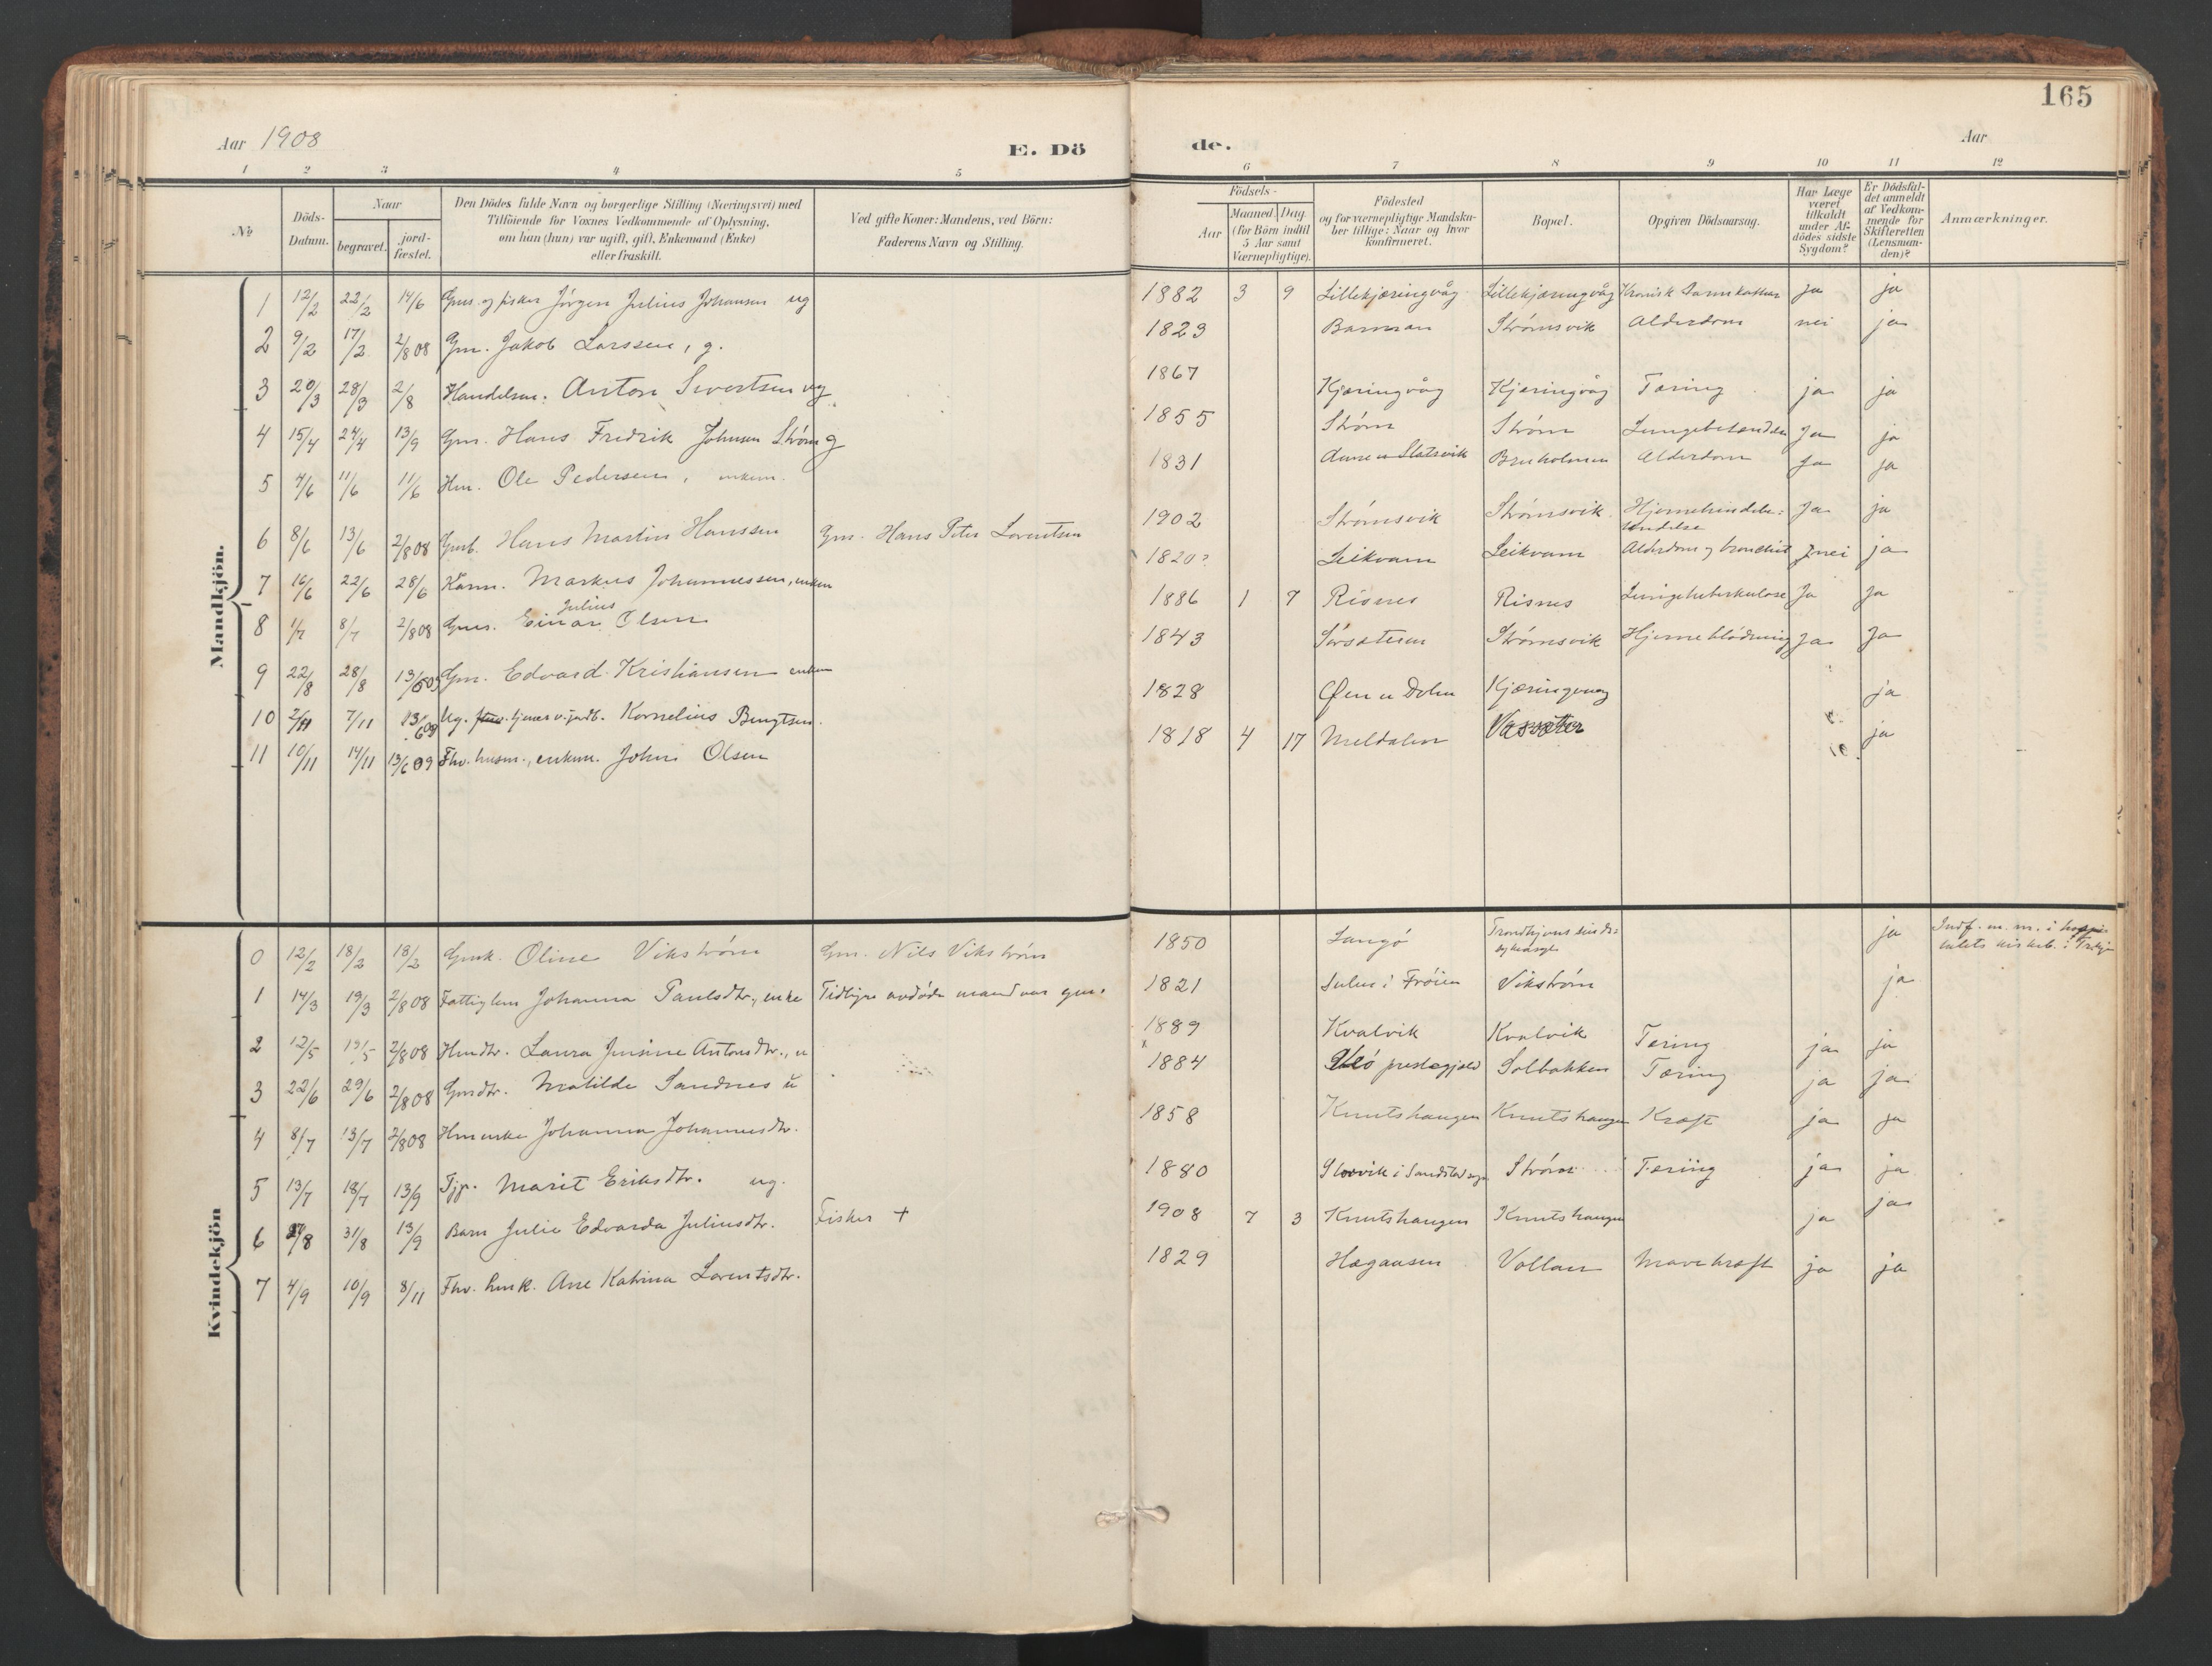 165
Aar 1908
E. Dö
de.
Aar
1 2 3 4 5 6 7 8 9 10 11 12
№
Döds-Datum.
Naar
begravet.
jord-fæstet.
Den Dödes fulde Navn og borgerlige Stilling (Næringsvei) med
Tilföiende for Voxnes Vedkommende af Oplysning,
om han (hun) var ugift, gift, Enkemand (Enke)
eller fraskilt.
Ved gifte Koner: Mandens, ved Börn:
Faderens Navn og Stilling.
Födsels-
Aar
Maaned. Dag
(for Börn indtil
5 Aar samt
Værnepligtige).
Födested
og for værnepligtige Mandska-
ber tillige: Naar og hvor
konfirmeret.
Bopæl.
Opgiven Dödsaarsag.
Har Læge
været
tilkaldt
under Af-
dödes sidste
Sygdom?
Er Dödsfal-
det anmeldt
af Vedkom-
mende for
Skifteretten
(Lensman-
den)?
Anmærkninger.
Mandkjön.
1 12/2 22/2 14/6 Gms. og fisker Jörgen Julius Johansen ug 1882 3 9 Lillekjæringvåg Lillekjæringvåg Kronisk tarmkathar ja ja
2 9/2 17/2 2/8 08 Gm. Jakob Larssen, g. 1823 Barman Strömsvik Alderdom nei ja
3 20/3 28/3 2/8 Handelsm. Anton Sivertsen ug 1867 Kjæringvåg Kjæringvåg Tæring ja ja
4 15/4 24/4 13/9 Gm. Hans Fredrik Johnsen Ström g 1855 Ström Ström Lungebetændelse Ja ja
5 4/6 11/6 11/6 Hm. Ole Pedersen, enkem. 1831 Slatsvik Bruholmen Alderdom Ja ja
6 8/6 13/6 2/8 08 Gmb. Hans Martin Hanssen Gm. Hans Peter Lorentsen 1902 Strömsvik Strömsvik Hjernehindebe-
tændelse Ja ja
7 16/6 22/6 28/6 Kårm. Markus Johannessen, enkem 1820? Leikvam Leikvam Alderdom og bronchit nei ja
8 1/7 8/7 2/8 08 Gms. Einar Julius Olsen 1886 1 7 Risnes Risnes Lungetuberkulose Ja Ja
9 22/8 28/8 13/6 09 Gm. Edvard Kristiansen enkem 1843 Sörsæteren Strömsvik Hjerneblödning Ja Ja
10 2/11 7/11 13/6 09 Ug. tjener v. jordb. Kornelius Bengtsen. 1828 Öen Dolm Kjæringvaag ja
11 10/11 14/11 13/6 09 Fhv. husm., enkem. John Olsen 1818 4 17 Meldalen Vassæter ja
Kvindekjön
0 12/2 18/2 18/2 Gmk. Oline Vikström Gm. Nils Vikström 1850 Langö Trondhjems sinds-
sygeasyl ja Indf. m. m. i hospi-
talets kirkeb. i Trhjm
1 14/3 19/3 2/8 08 Fattiglem Johanna Paulsdtr., enke Tidligere avdöde mand var gm. 1821 Sulen i Fröien Vikström ja
2 12/5 19/5 2/8 08 Hmdtr. Laura Jensine Antonsdtr., u 1889 Kvalvik Kvalvik Tæring ja ja
3 22/6 29/6 2/8 08 Gmdtr. Matilde Sandnes u 1884 prestegjæld Solbakken Tæring ja ja
4 8/7 13/7 2/8 08 Hmenke Johanna Johannesdtr. 1858 Knutshaugen Knutshaugen Kræft ja ja
5 13/7 18/7 13/9 Tjp. Marit Eriksdtr. ug. 1880 Storvik i Sandstad sogn Ström Tæring ja ja
6 27/8 31/8 13/9 Barn Julie Edvarda Juliusdtr. Fisker + 1908 7 3 Knutshaugen Knutshaugen ja ja
7 4/9 10/9 8/11 Fhv. hmk. Ane Katrina Lorentsdtr. 1829 Hægaasen Vollan Mavekræft ja ja